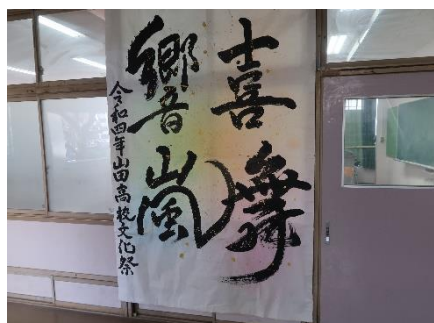 喜舞
響嵐
令和四年山田高校文化祭